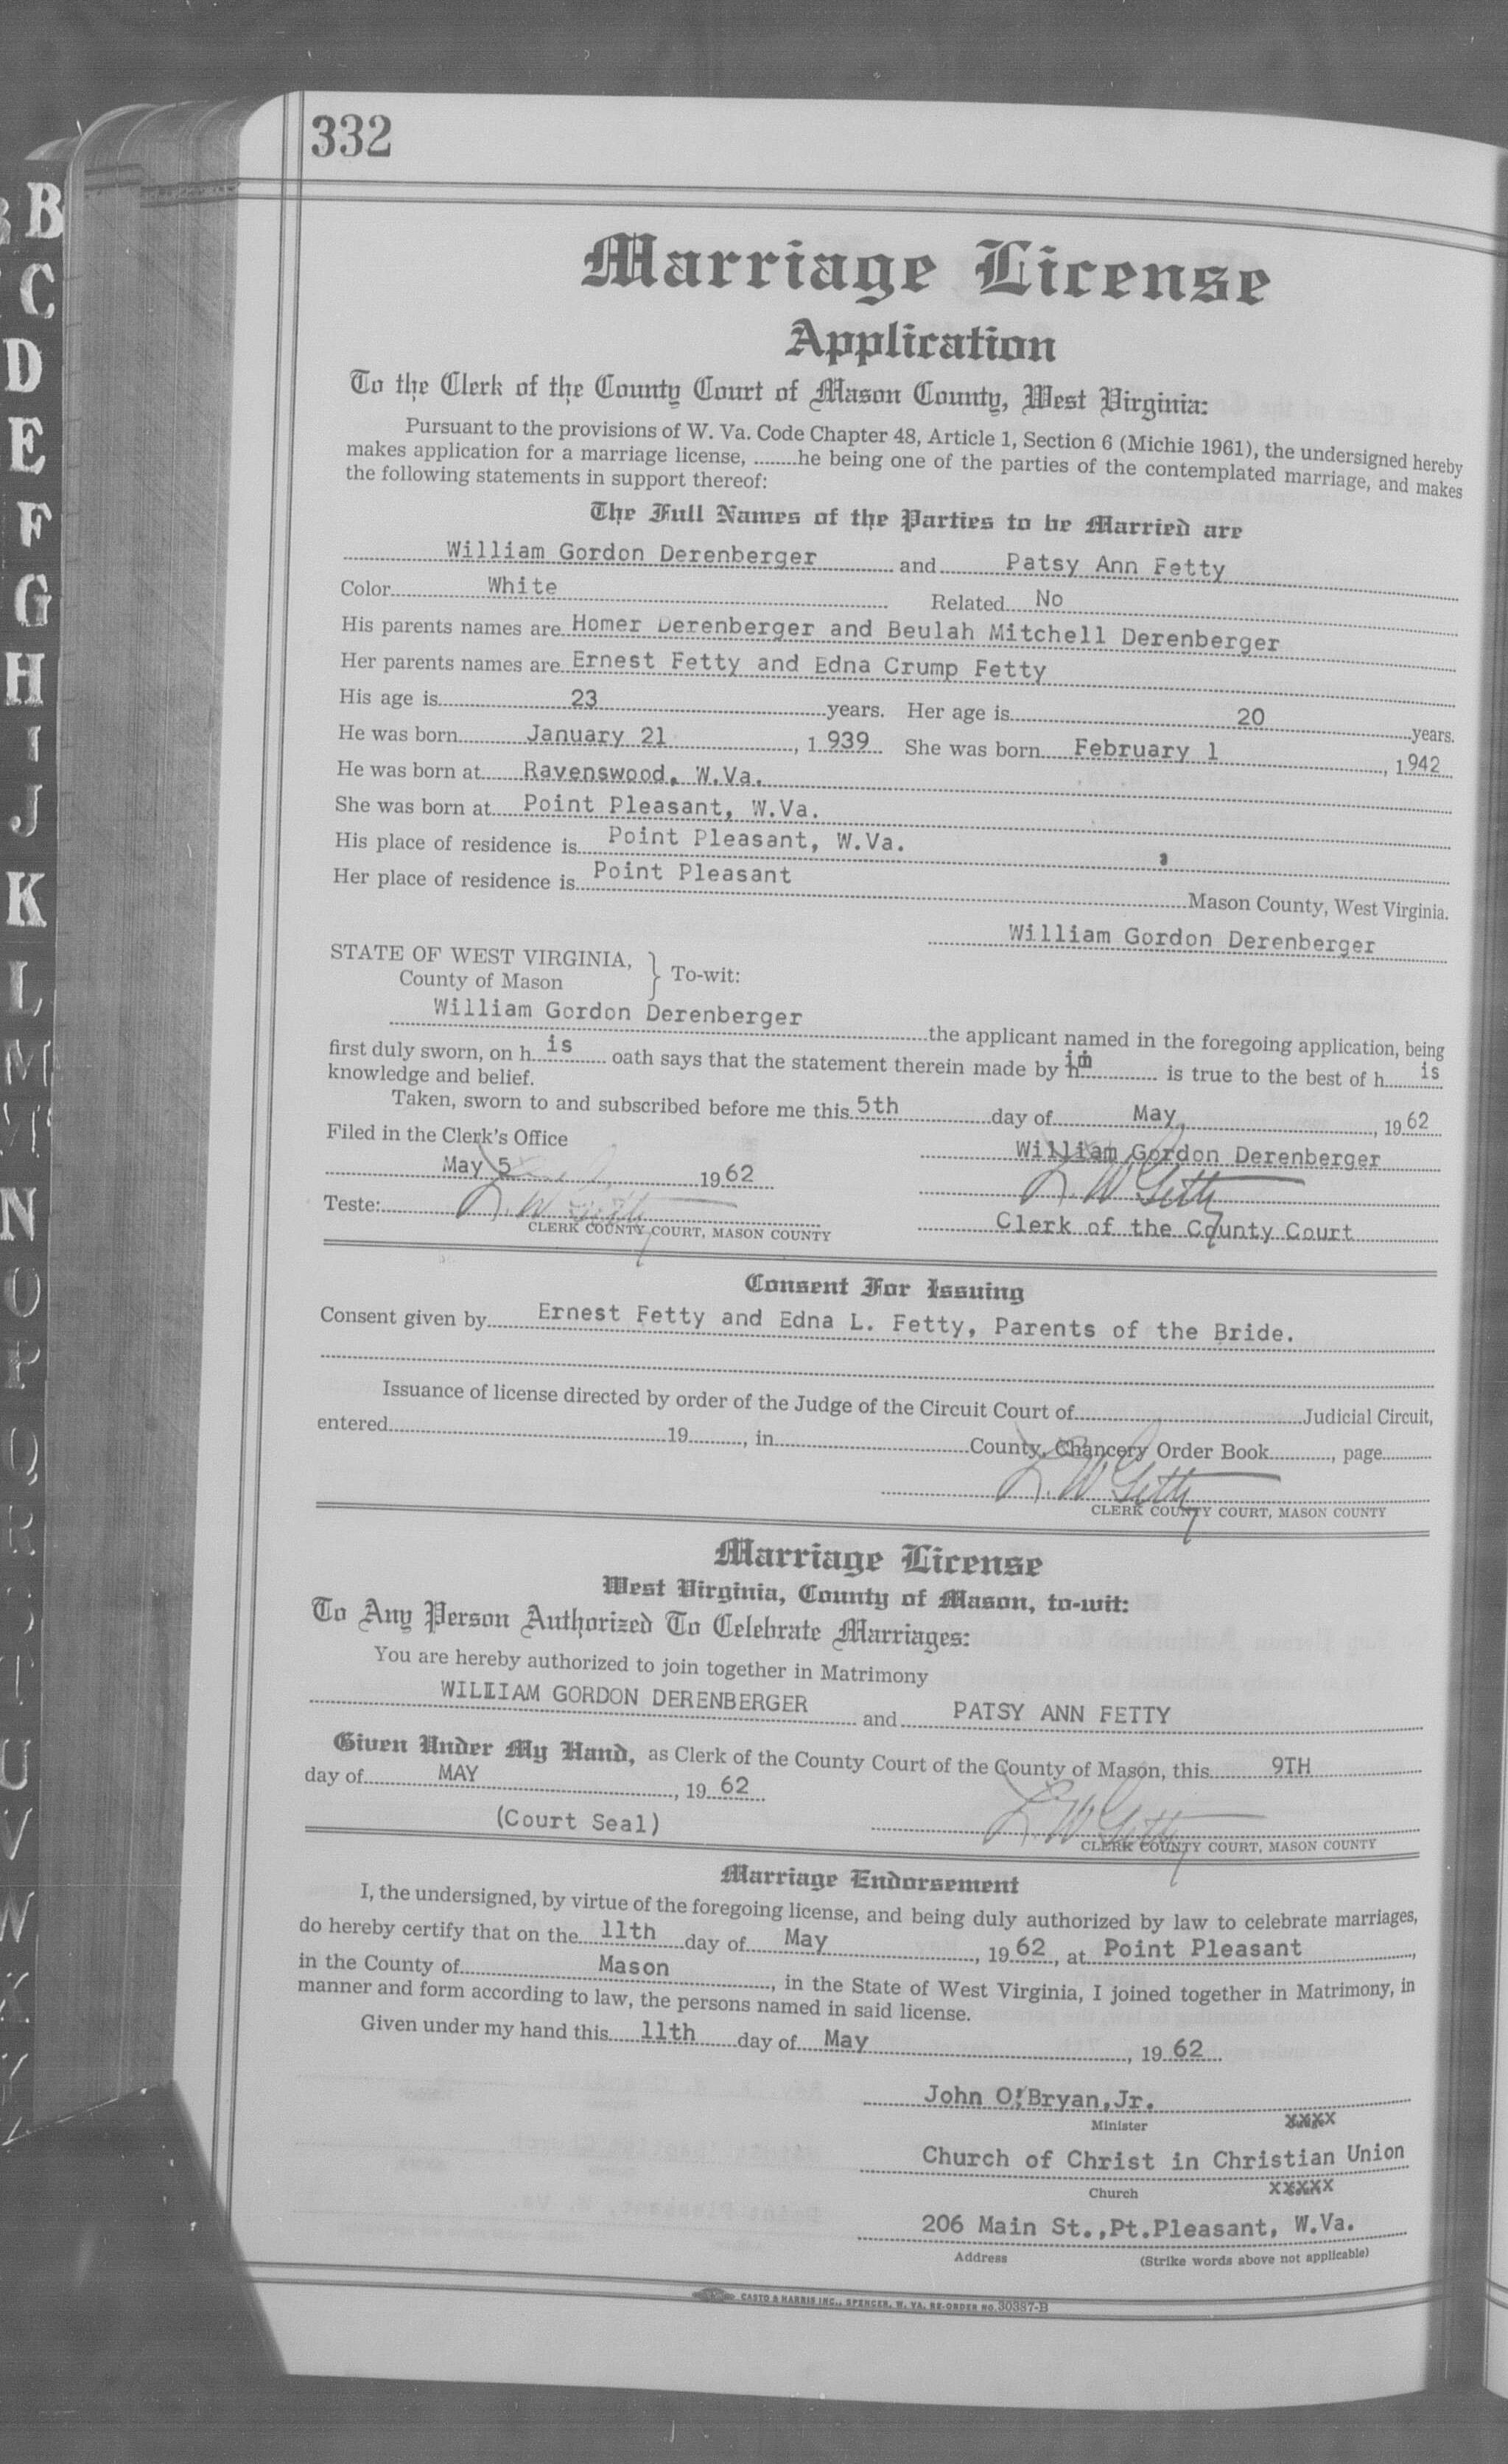 332
B
C
D
E
F
G
H
I
J
K
L
M
N
O
P
Q
R
U
V
W
Marriage License
Application
To the Clerk of the County Court of Mason County, West Virginia:
Pursuant to the provisions of W. Va. Code Chapter 48, Article 1, Section 6 (Michie 1961), the undersigned hereby
makes application for a marriage license, ........he being one of the parties of the contemplated marriage, and makes
the following statements in support thereof:
The Full Names of the Parties to be Married are
William Gordon Derenberger and Patsy Ann Fetty
Color White Related No
His parents names are Homer Derenberger and Beulah Mitchell Derenberger
Her parents names are Ernest Fetty and Edna Crump Fetty
His age is 23 years. Her age is 20 years.
He was born January 21, 1939 She was born February 1, 1942
He was born at Ravenswood, W.Va.
She was born at Point Pleasant, W.Va.
His place of residence is Point Pleasant, W.Va. ,
Her place of residence is Point Pleasant Mason County, West Virginia.
William Gordon Derenberger
STATE OF WEST VIRGINIA,
County of Mason } To-wit:
William Gordon Derenberger the applicant named in the foregoing application, being
first duly sworn, on his oath says that the statement therein made by him is true to the best of his
knowledge and belief.
Taken, sworn to and subscribed before me this 5th day of May, 1962
Filed in the Clerk's Office William Gordon Derenberger
May 5 1962
Teste:
CLERK COUNTY COURT, MASON COUNTY Clerk of the County Court
Consent For Issuing
Consent given by Ernest Fetty and Edna L. Fetty, Parents of the Bride.
Issuance of license directed by order of the Judge of the Circuit Court of Judicial Circuit,
entered 19, in County, Chancery Order Book, page
CLERK COUNTY COURT, MASON COUNTY
Marriage License
West Virginia, County of Mason, to-wit:
To Any Person Authorized To Celebrate Marriages:
You are hereby authorized to join together in Matrimony
WILLIAM GORDON DERENBERGER and PATSY ANN FETTY
Given Under My Hand, as Clerk of the County Court of the County of Mason, this 9TH
day of MAY, 1962
(Court Seal)
CLERK COUNTY COURT, MASON COUNTY
Marriage Endorsement
I, the undersigned, by virtue of the foregoing license, and being duly authorized by law to celebrate marriages,
do hereby certify that on the 11th day of May, 1962, at Point Pleasant,
in the County of Mason, in the State of West Virginia, I joined together in Matrimony, in
manner and form according to law, the persons named in said license.
Given under my hand this 11th day of May, 1962
John O'Bryan, Jr.
Minister xxxx
Church of Christ in Christian Union
Church xxxxx
206 Main St., Pt.Pleasant, W.Va.
Address (Strike words above not applicable)
CASTO & HARRIS INC., SPENCER, W. VA. RE-ORDER NO. 30387-B